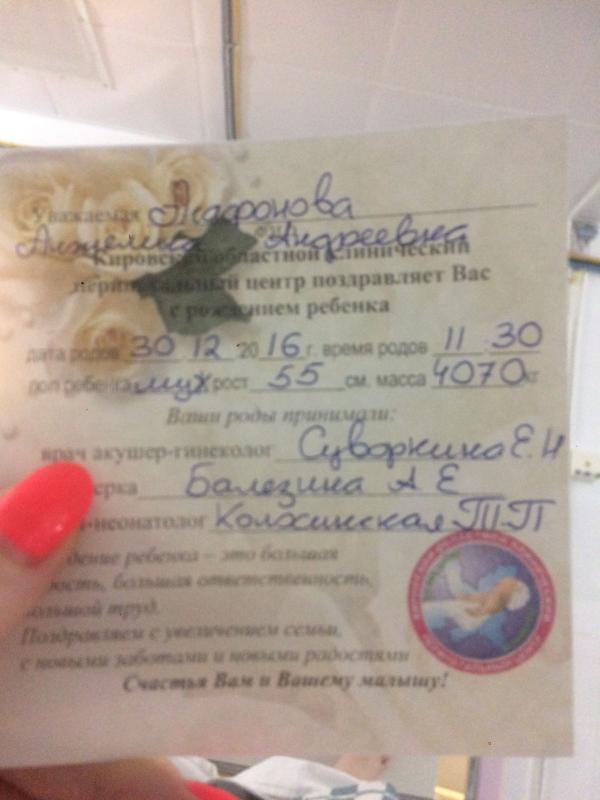 Уважаемая
Анжелика Андреевна
Кировский областной клинический
перинатальный центр поздравляет Вас
с рождением ребенка
дата родов 30 12 2016 г. время родов 11 30
пол ребенка муж рост 55 см. масса 4070 кг
Ваши роды принимали:
врач акушер-гинеколог Суворкина Е. Н
ерка Балезина А Е
-неонатолог Т П
дение ребенка – это большая
ость, большая ответственность,
большой труд.
Поздравляем с увеличением семьи,
с новыми заботами и новыми радостями
Счастья Вам и Вашему малышу!